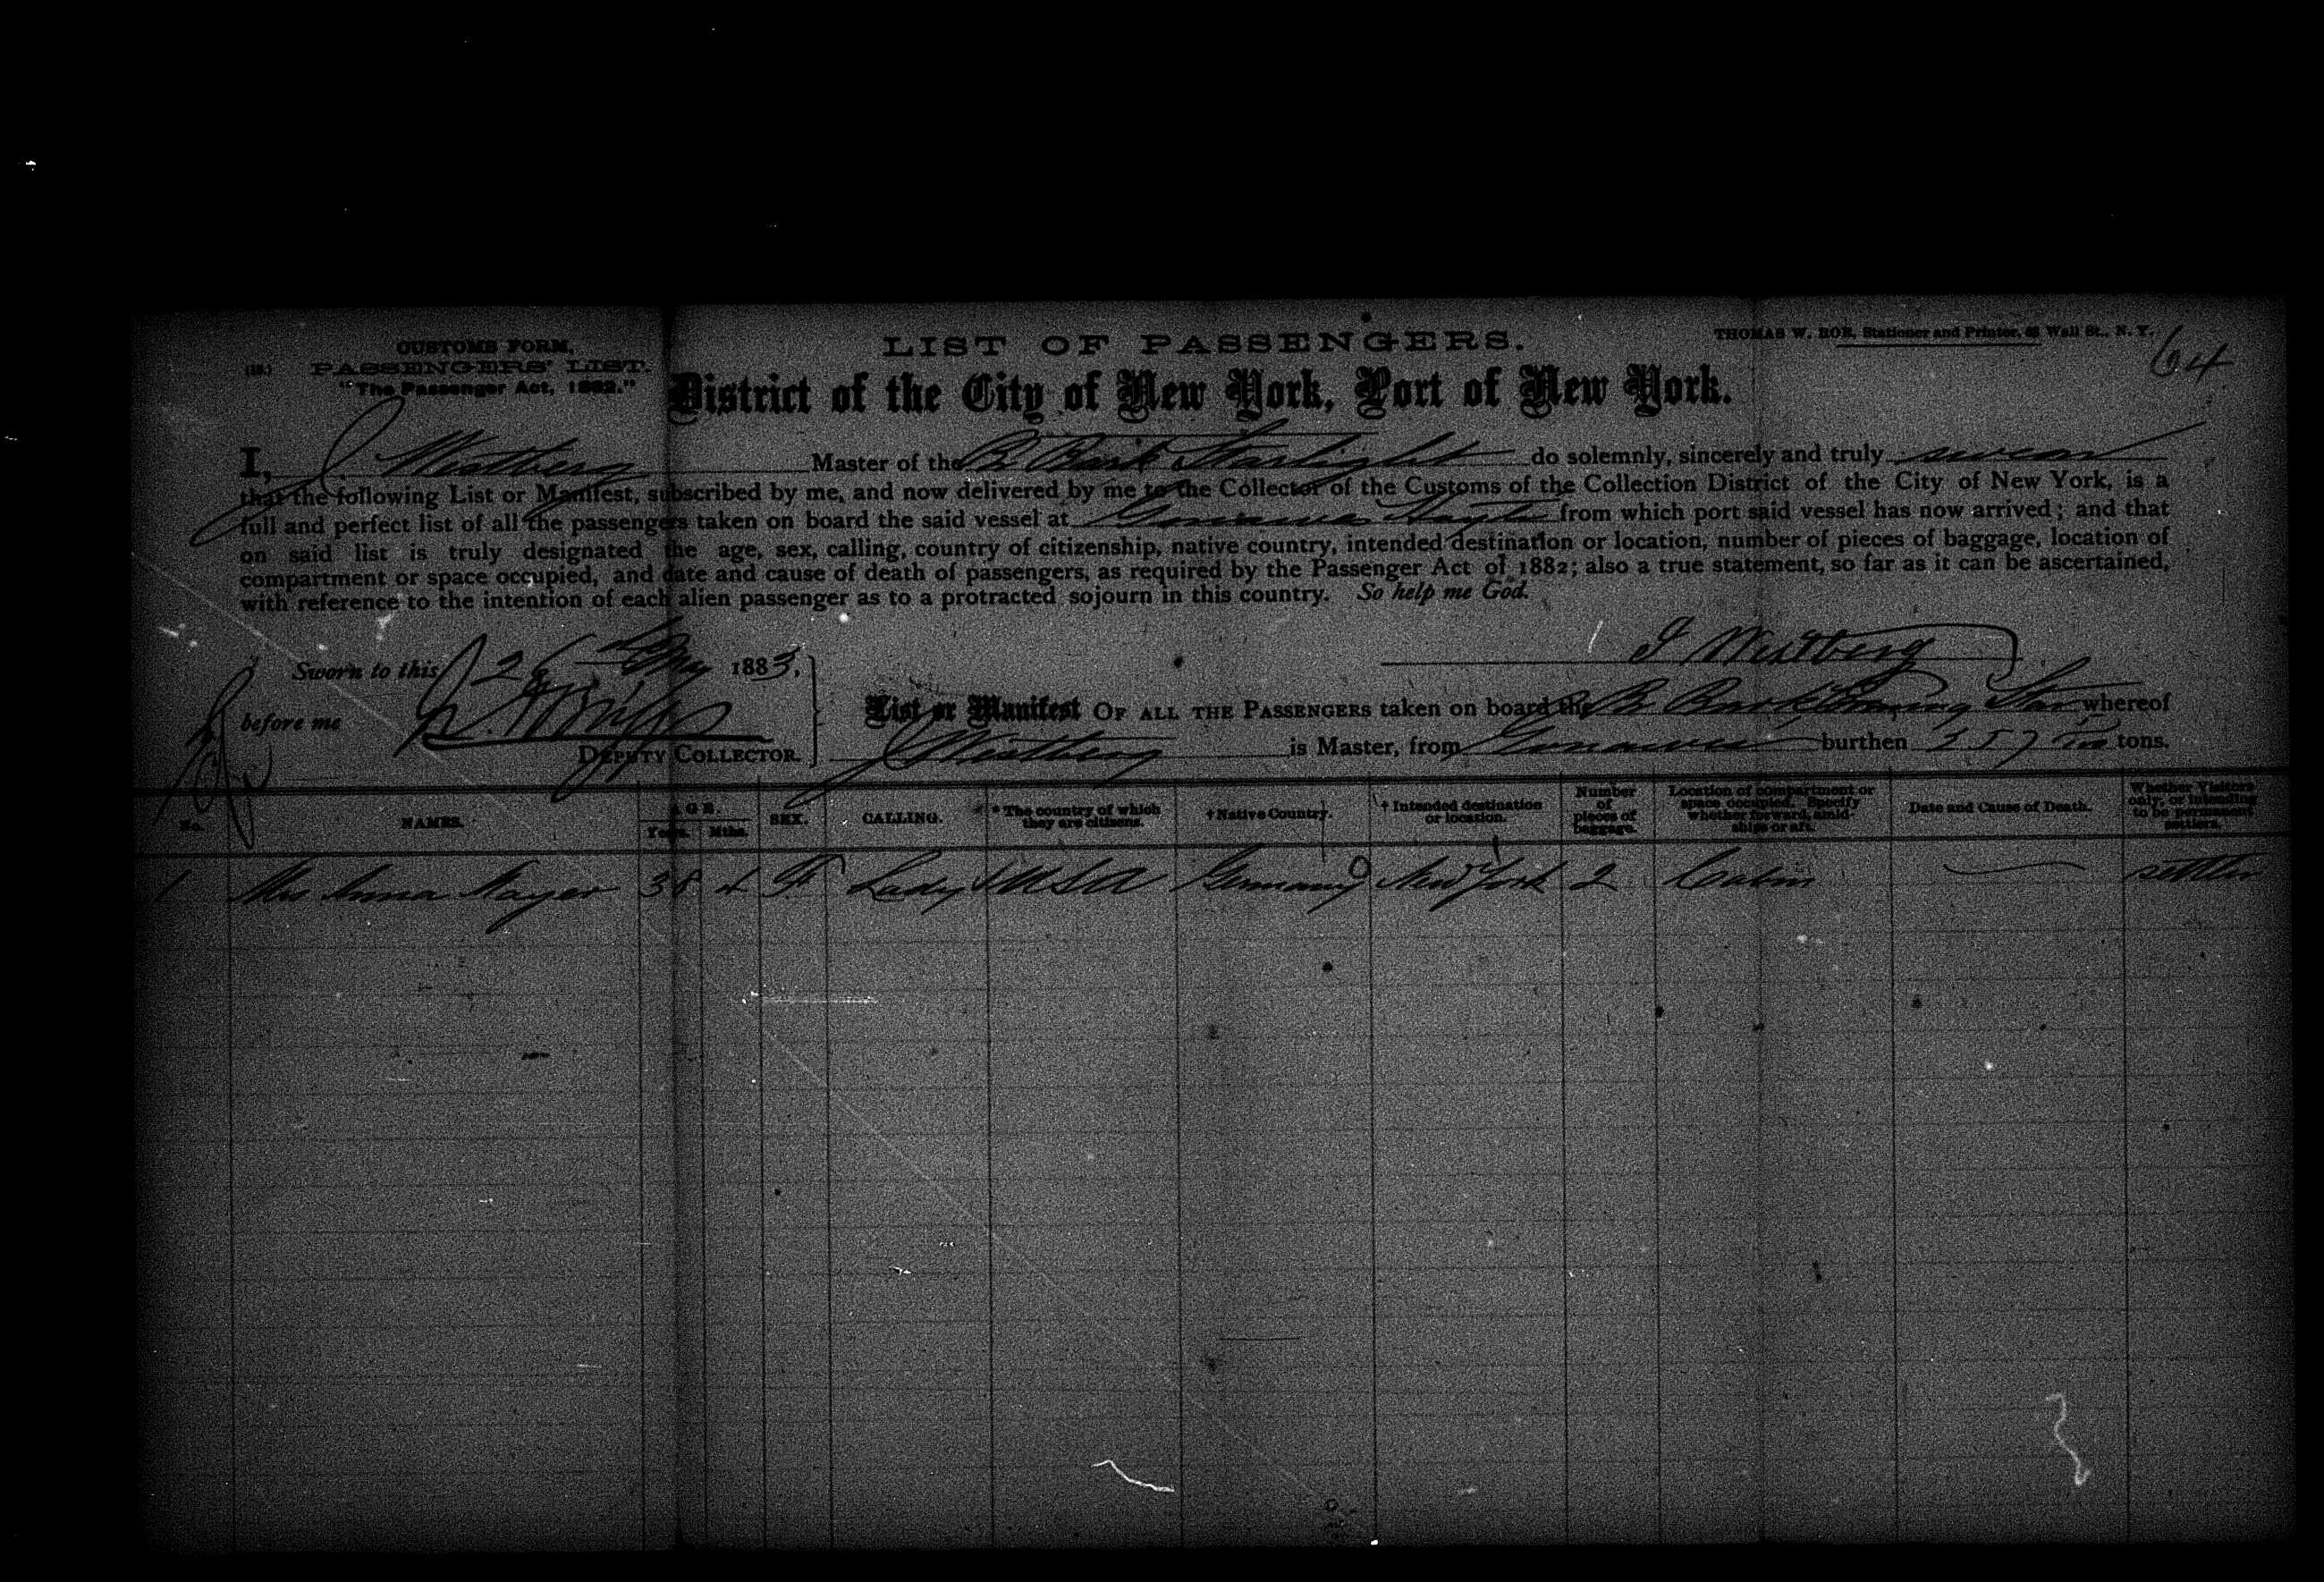 CUSTOMS FORM,
PASSENGERS' LIST.
"The Passenger Act, 1882."
LIST OF PASSENGERS.
THOMAS W. ROE, Stationer and Printer, Wall St., N. Y.
64
District of the City of New York, Port of New York.
I, J. Westberg Master of the Br Bark Starlight do solemnly, sincerely and truly swear
that the following List or Manifest, subscribed by me, and now delivered by me to the Collector of the Customs of the Collection District of the City of New York, is a
full and perfect list of all the passengers taken on board the said vessel at Gonaives Hayti from which port said vessel has now arrived; and that
on said list is truly designated the age, sex, calling, country of citizenship, native country, intended destination or location, number of pieces of baggage, location of
compartment or space occupied, and date and cause of death of passengers, as required by the Passenger Act of 1882; also a true statement, so far as it can be ascertained,
with reference to the intention of each alien passenger as to a protracted sojourn in this country. So help me God.
J Westberg
Sworn to this 26 May 1883,
before me
DEPUTY COLLECTOR.
List or Manifest OF ALL THE PASSENGERS taken on board the Br Bark Star whereof
J Westberg is Master, from Gonaives burthen 357 tons.
No. NAMES. AGE. Years. Mths. SEX. CALLING. * The country of which they are citizens. † Native Country. † Intended destination or location. Number of pieces of baggage. Location of compartment or space occupied. Specify whether forward, amidships or aft. Date and Cause of Death. Whether Visitors only, or intending to be permanent settlers.
1 Mrs Anna Mayer 38 F Lady USA Germany New York 2 Cabin settler